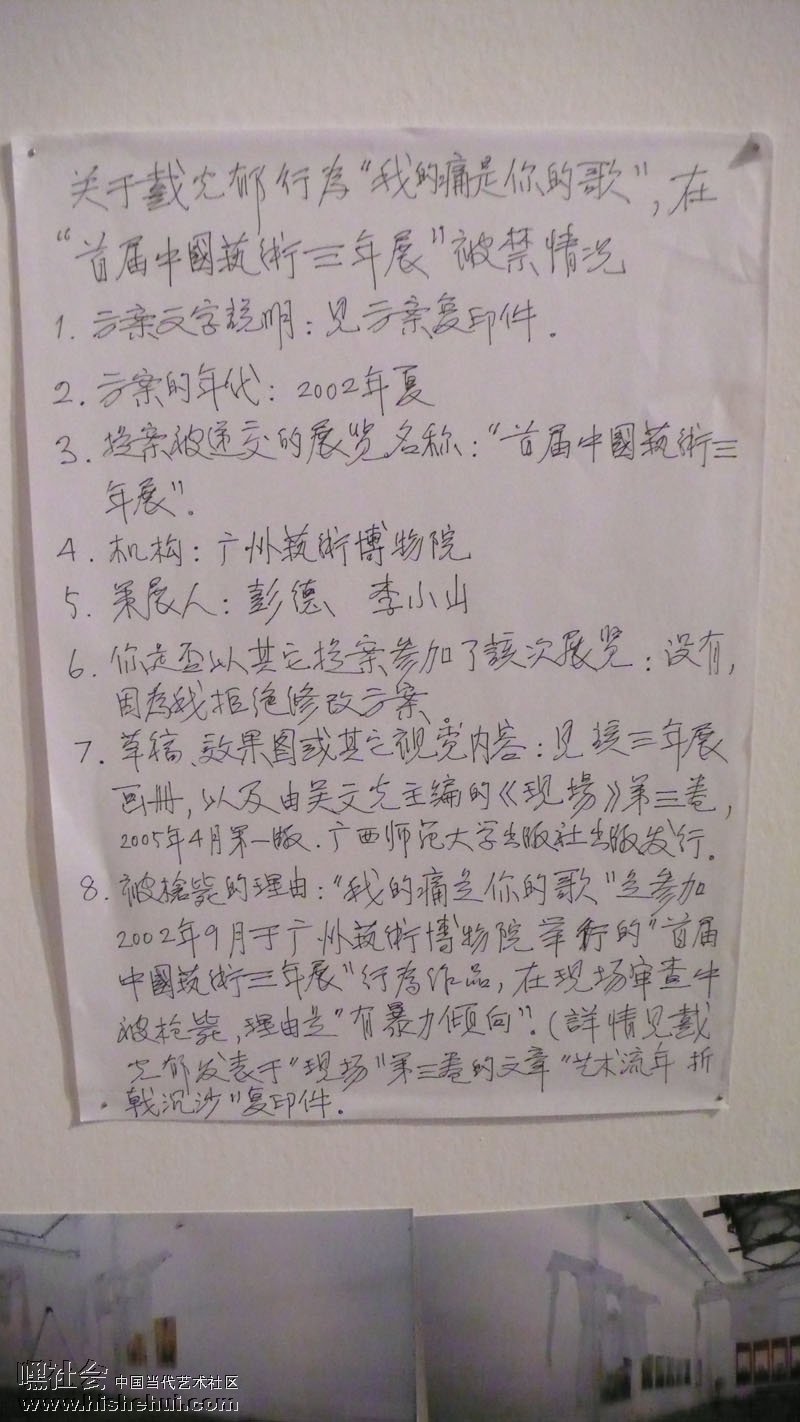 关于戴光郁行为“我的痛是你的歌”，在
“首届中國藝術三年展”被禁情况
1. 方案文字説明：见方案复印件.
2. 方案的年代：2002年夏
3. 提案被递交的展览名称：“首届中國藝術三
年展”.
4. 机构：广州藝術博物院
5. 策展人：彭德、李小山
6. 你是否以其它提案参加了該次展览：没有，
因為我拒绝修改方案.
7. 草稿、效果图或其它视觉内容：见該三年展
画册，以及由吴文光主编的《现場》第三卷，
2005年4月第一版. 广西师范大学出版社出版发行.
8. 被槍毙的理由：“我的痛是你的歌”是参加
2002年9月于广州藝術博物院举行的“首届
中國藝術三年展”行為作品，在现场审查中
被枪毙，理由是“有暴力倾向”.（詳情见戴
光郁发表于“现场”第三卷的文章“艺术流年 折
戟沉沙”复印件.
嘿社会 中国当代艺术社区
www.hishehui.com